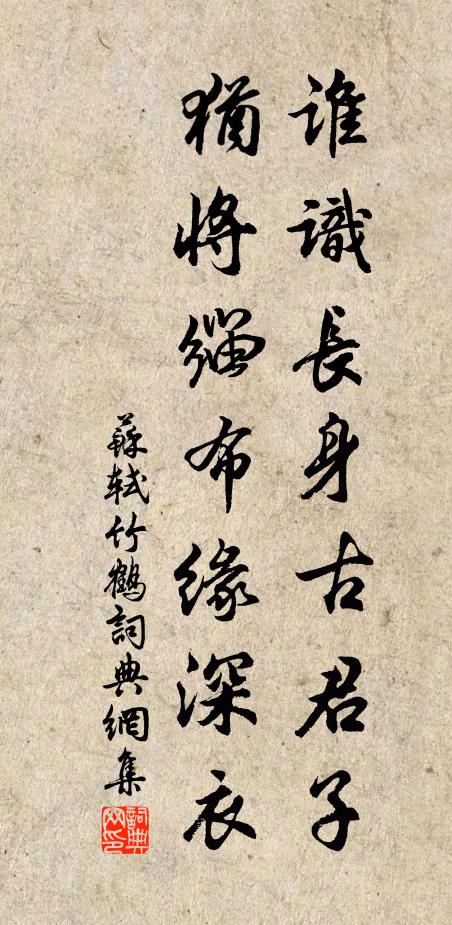 誰識長身古君子
猶將緇布緣深衣
蘇軾竹鶴詞典網集
詞典網印